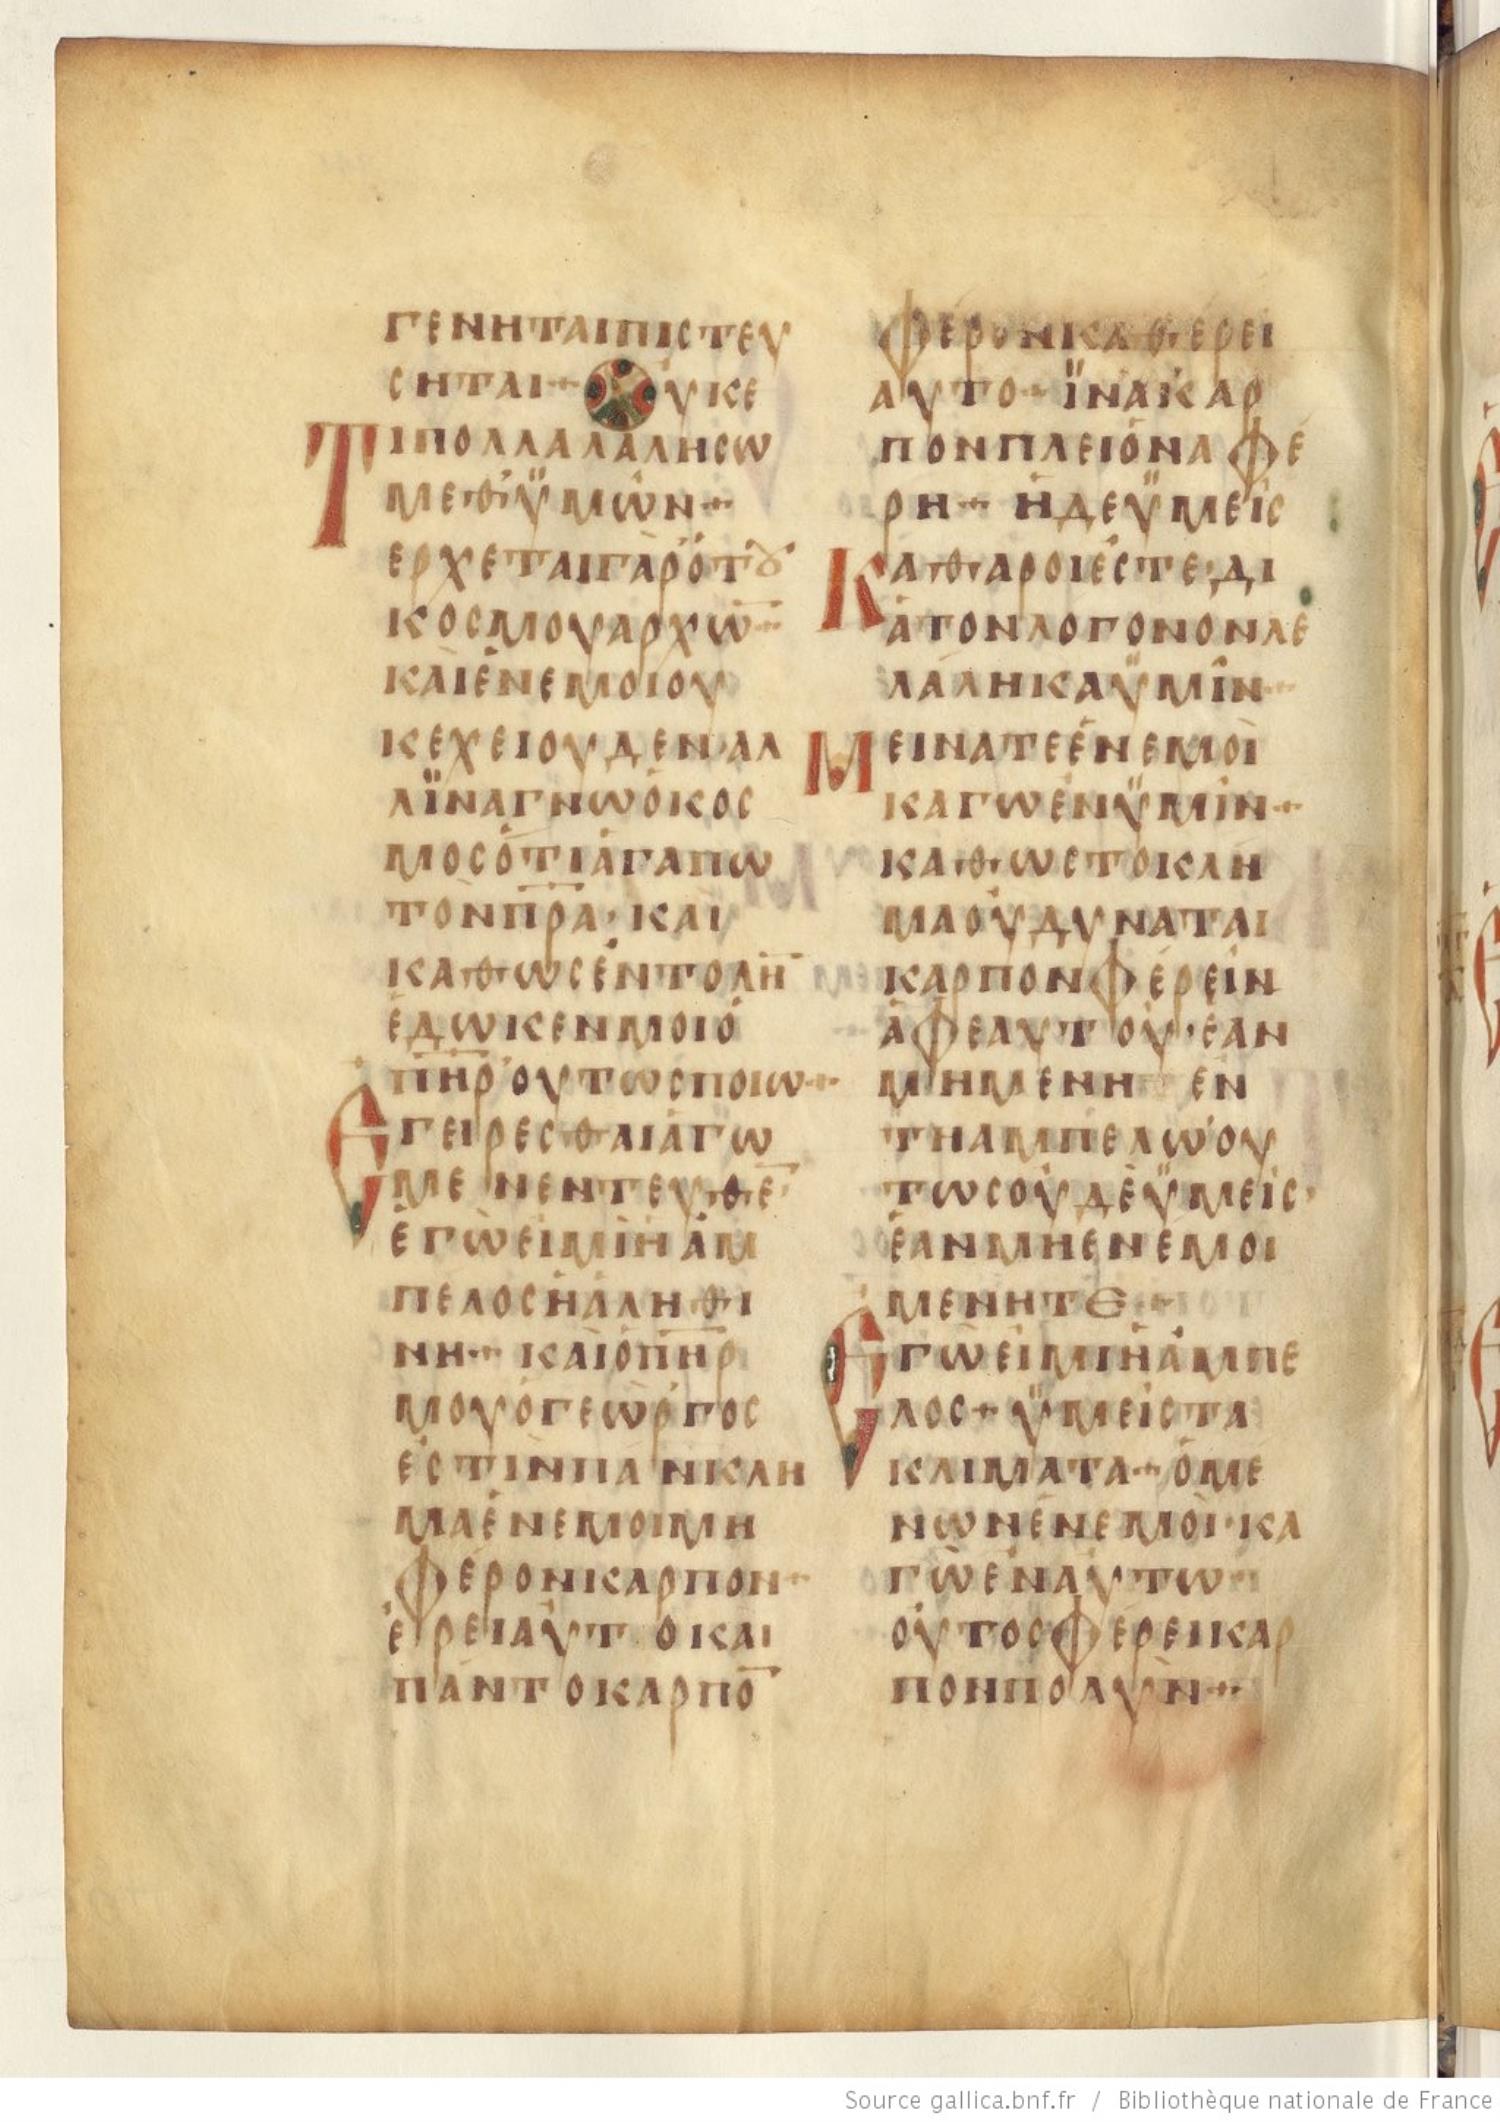 ΓΕΝΗΤΑΙΠΙCΤΕΥ
CΗΤΑΙ·+ ΟΥΚΕ
ΤΙΠΟΛΛΑΛΑΛΗCΩ
ΜΕΘΫΜΩΝ·+
ΕΡΧΕΤΑΙΓΑΡὁΤȢ
ΚΟCΜΟΥΑΡΧΩ̅·
ΚΑΙΕΝΕΜΟΙΟΥ
ΚΕΧΕΙΟΥΔΕΝ·ΑΛ
ΛΪΝΑΓΝΩὁΚΟC
ΜΟCὅΤΙἀΓΑΠΩ
ΤΟΝΠ̅Ρ̅Α· ΚΑΙ
ΚΑΘΩCΕΝΤΟΛΗ̅
ΕΔΩΚΕΝΜΟΙὁ
Π̅Η̅Ρ̅ΟΥΤΩCΠΟΙΩ·+
ΕΓΕΙΡΕCΘΑΙΑΓΩ
ΜΕΝΕΝΤΕΥΘΕ̅·
ΕΓΩΕΙΜΙΗΑΜ
ΠΕΛΟCΗΑΛΗΘΙ
ΝΗ·+ ΚΑΙΟΠ̅Η̅Ρ̅
ΜΟΥὁΓΕΩΡΓΟC
ΕCΤΙΝΠΑΝΚΛΗ
ΜΑΕΝΕΜΟΙΜΗ
ΦΕΡΟΝΚΑΡΠΟΝ·+
ΕΡΕΙΑΥΤΟΚΑΙ
ΠΑΝΤΟΚΑΡΠΟ̅
ΦΕΡΟΝΚΑΘΕΡΕΙ
ΑΥΤΟ·+ ΪΝΑΚΑΡ
ΠΟΝΠΛΕΙΟΝΑΦΕ
ΡΗ·+ ΗΔΕΫΜΕΙC
ΚΑΘΑΡΟΙΕCΤΕ·ΔΙ
ΑΤΟΝΛΟΓΟΝΟΝΛΕ
ΛΑΛΗΚΑΫΜΙΝ·+
ΜΕΙΝΑΤΕΕΝΕΜΟΙ
ΚΑΓΩΕΝΫΜΙΝ·+
ΚΑΘΩCΤΟΚΛΗ
ΜΑΟΥΔΥΝΑΤΑΙ
ΚΑΡΠΟΝΦΕΡΕΙΝ
ΑΦΕΑΥΤΟΥ·ΕΑΝ
ΜΗΜΕΝΗ ΕΝ
ΤΗΑΜΠΕΛΩ·ΟΥ
ΤΩCΟΥΔΕΫΜΕΙC·
ΕΑΝΜΗΕΝΕΜΟΙ
ΜΕΝΗΤΕ·+
ΕΓΩΕΙΜΙΗΑΜΠΕ
ΛΟC+ ΫΜΕΙCΤΑ
ΚΛΙΜΑΤΑ·+ὁΜΕ
ΝΩΝΕΝΕΜΟΙ·ΚΑ
ΓΩΕΝΑΥΤΩ·
ΟΥΤΟCΦΕΡΕΙΚΑΡ
ΠΟΝΠΟΛΥΝ·+
Source gallica.bnf.fr / Bibliothèque nationale de France